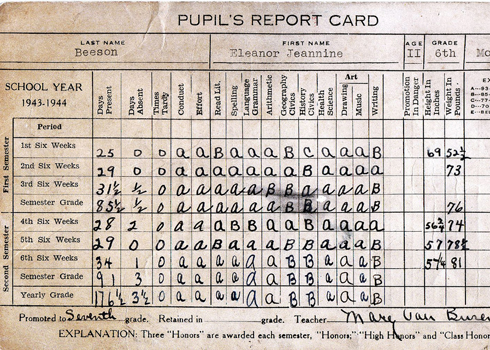 PUPIL'S REPORT CARD
LAST NAME FIRST NAME AGE GRADE
Beeson Eleanor Jeannine II 6th Mo
SCHOOL YEAR
1943-1944
Days Present Days Absent Times Tardy Conduct Effort Read Lit. Spelling Language Grammar Arithmetic Geography Civics History Civics Health Science Art Drawing Music Writing Promotion In Danger Height In Inches Weight In Pounds
Period
First Semester
1st Six Weeks 25 0 0 a a B a a a B C a a a B 69 52½
2nd Six Weeks 29 0 0 a a a a a a a a a a a B 73
3rd Six Weeks 31½ ½ 0 a a a a a B B a a a a B
Semester Grade 85½ ½ 0 a a a a a a B B a a a B 76
Second Semester
4th Six Weeks 28 2 0 a a a a a a B a B a a a 74
5th Six Weeks 29 0 0 a a B a a a B B a a a B 57
6th Six Weeks 34 1 0 a a a a a a B B a a a B 81
Semester Grade 91 3 0 a a a a a a B B a a a B
Yearly Grade 176½ 3½ 0 a a a a a a B B a a a B
Promoted to Seventh grade. Retained in grade. Teacher Mary Van Buren
EXPLANATION: Three "Honors" are awarded each semester, "Honors;" "High Honors" and "Class Honor